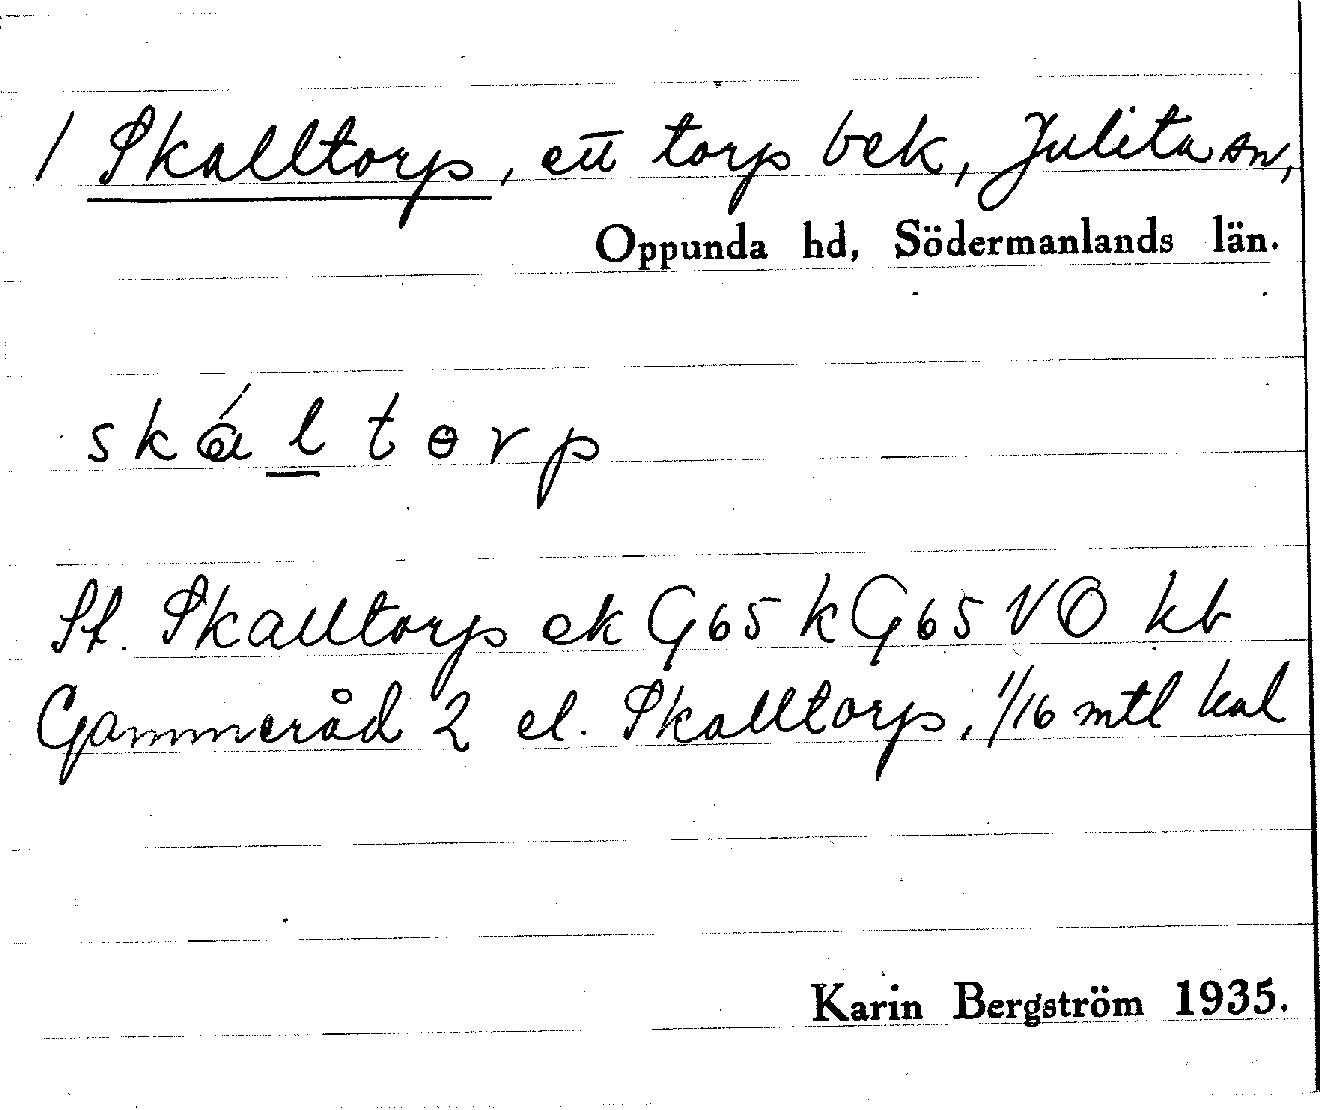 1 Skalltorp, ett torp bek, Julita sn,
Oppunda hd, Södermanlands län.
skáltorp
St. Skalltorp ek G65 k G65 VO kb
Gammeråd 2 el. Skalltorp, 1/16 mtl kal
Karin Bergström 1935.